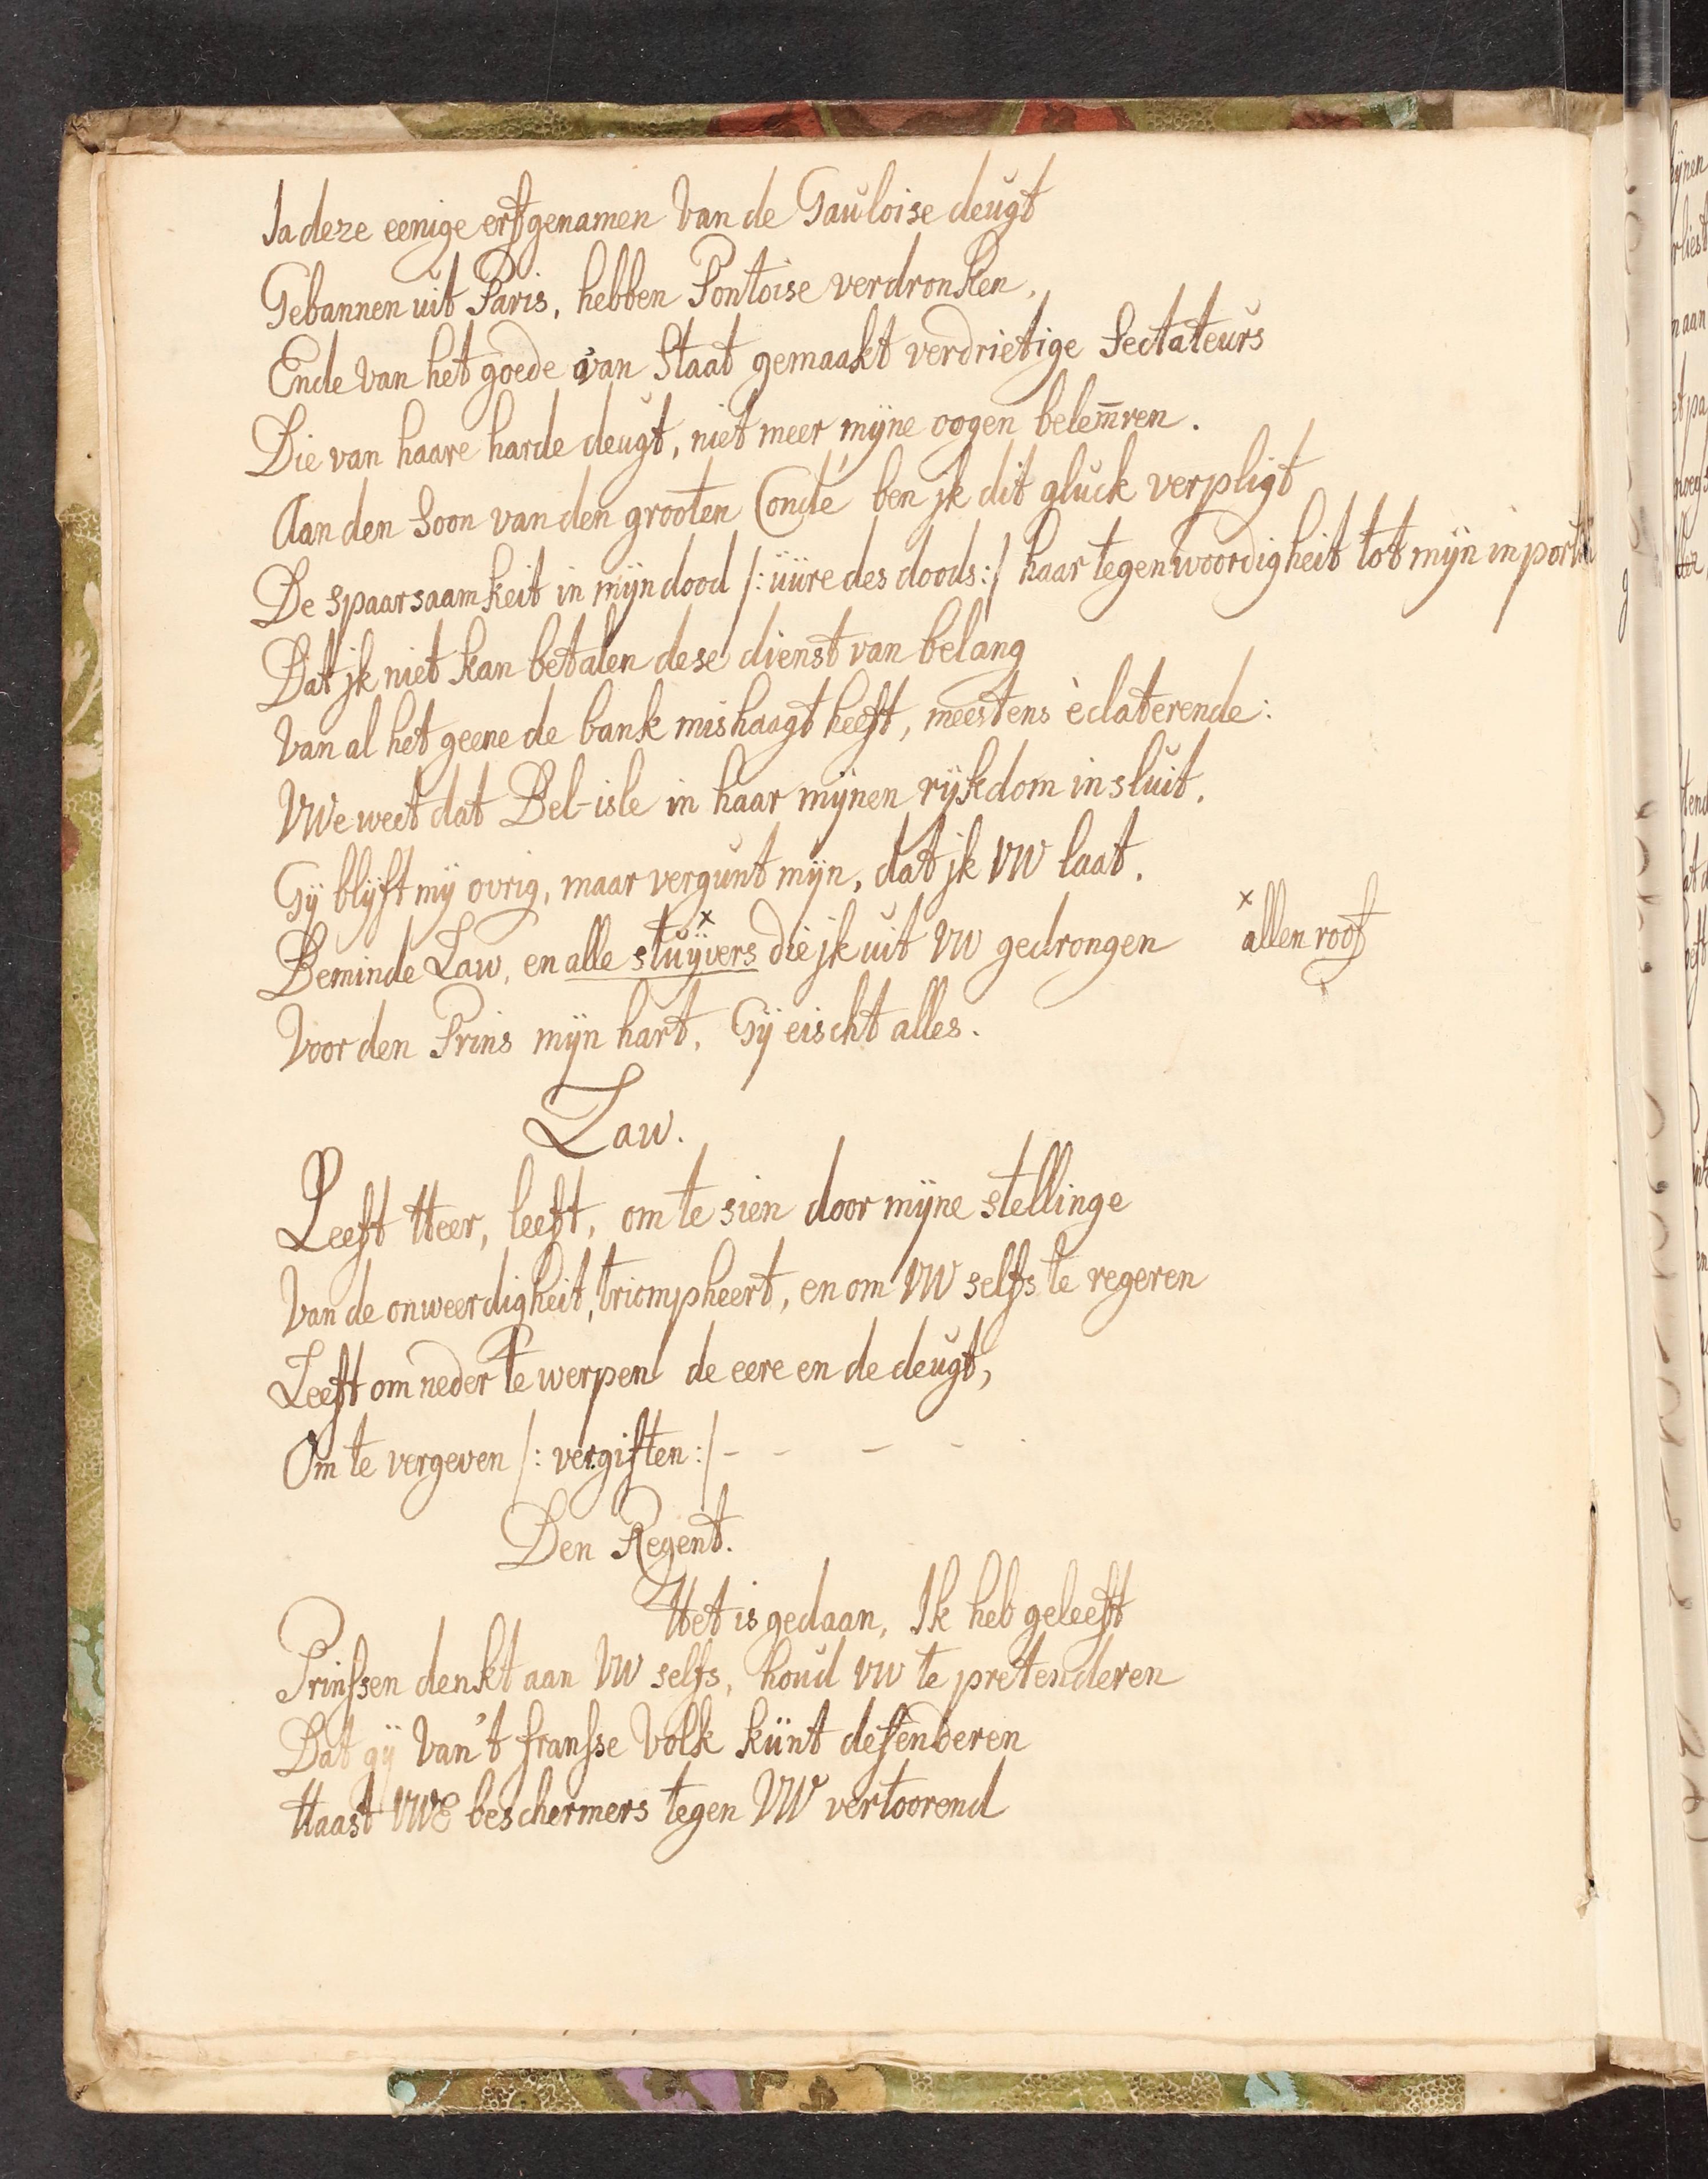 Ja deze eenige erfgenamen van de Gauloise deugt
Gebannen uit Paris, hebben Pontoise verdronken,
Ende van het goede van Staat gemaakt verdrietige Sectateurs
Die van haare harde deugt, niet meer mijne oogen belem̄ren.
Aan den Soon van den grooten Condé ben jk dit gluck verpligt
De spaarsaamkeit in mijn dood /: uüre des doods:/ haar tegenwoordigheit tot mijn in
Dat jk niet kan betalen dese dienst van belang
Van al het geene de bank mishaagt heeft, meestens èclaterende:
VWe weet dat Bel-isle in haar mijnen rijkdom in sluit,
Gij blijft mij ovrig, maar vergunt mijn, dat jk VW laat,
Beminde Law, en alle stuÿvers x die jk uit VW gedrongen x allen roof
Voor den Prins mijn hart, Gij eischt alles.
Law.
Leeft Heer, leeft, om te sien door mijne stellinge
Van de onweerdigheit, triompheert, en om VW selfs te regeren
Leeft om neder te werpen de eere en de deugt,
Om te vergeven /: vergiften:/ - - - - .
Den Regent.
Het is gedaan, Ik heb geleeft
Prinssen denkt aan VW selfs, houd VW te pretenderen
Dat gij Van't franse Volk künt defenderen
Haast VWE beschermers tegen VW vertoorend